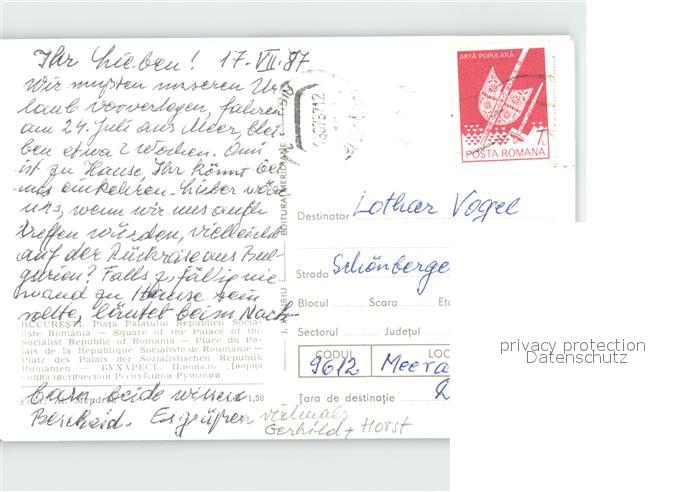 Ihr Lieben! 17.VII.87
Wir mußten unseren Ur-
laub vorverlegen, fahren
am 24. Juli ans Meer, blei-
ben etwa 2 Wochen. Omi
ist zu Hause, Ihr könnt bei
uns einkehren. Lieber wäre
uns, wenn wir uns auch
treffen würden, vielleicht
auf der Rückreise aus Bul-
garien? Falls zufällig nie-
mand zu Hause sein
sollte, läutet beim Nach-
BUCUREȘTI. Piața Palatului Republicii Socia-
liste România — Square of the Palace of the
Socialist Republic of Romania — Place du Pa-
lais de la République Socialiste de Roumanie —
Platz des Palais der Sozialistischen Republik
Rumänien — БУХАРЕСТ. Площадь Дворца
Социалистической Республики Румынии
1,50
barn, beide wissen
Bescheid. Es grüßen vielmals
Gerhild + Horst
EDITURA MERIDIANE
I. P. SIBIU
ARTĂ POPULARĂ
7L
POSTA ROMANA
Destinator Lothar Vogel
Strada Schönberge
Blocul Scara Eta
Sectorul Județul
CODUL LOC
9612 Meera
Țara de destinație D
privacy protection
Datenschutz